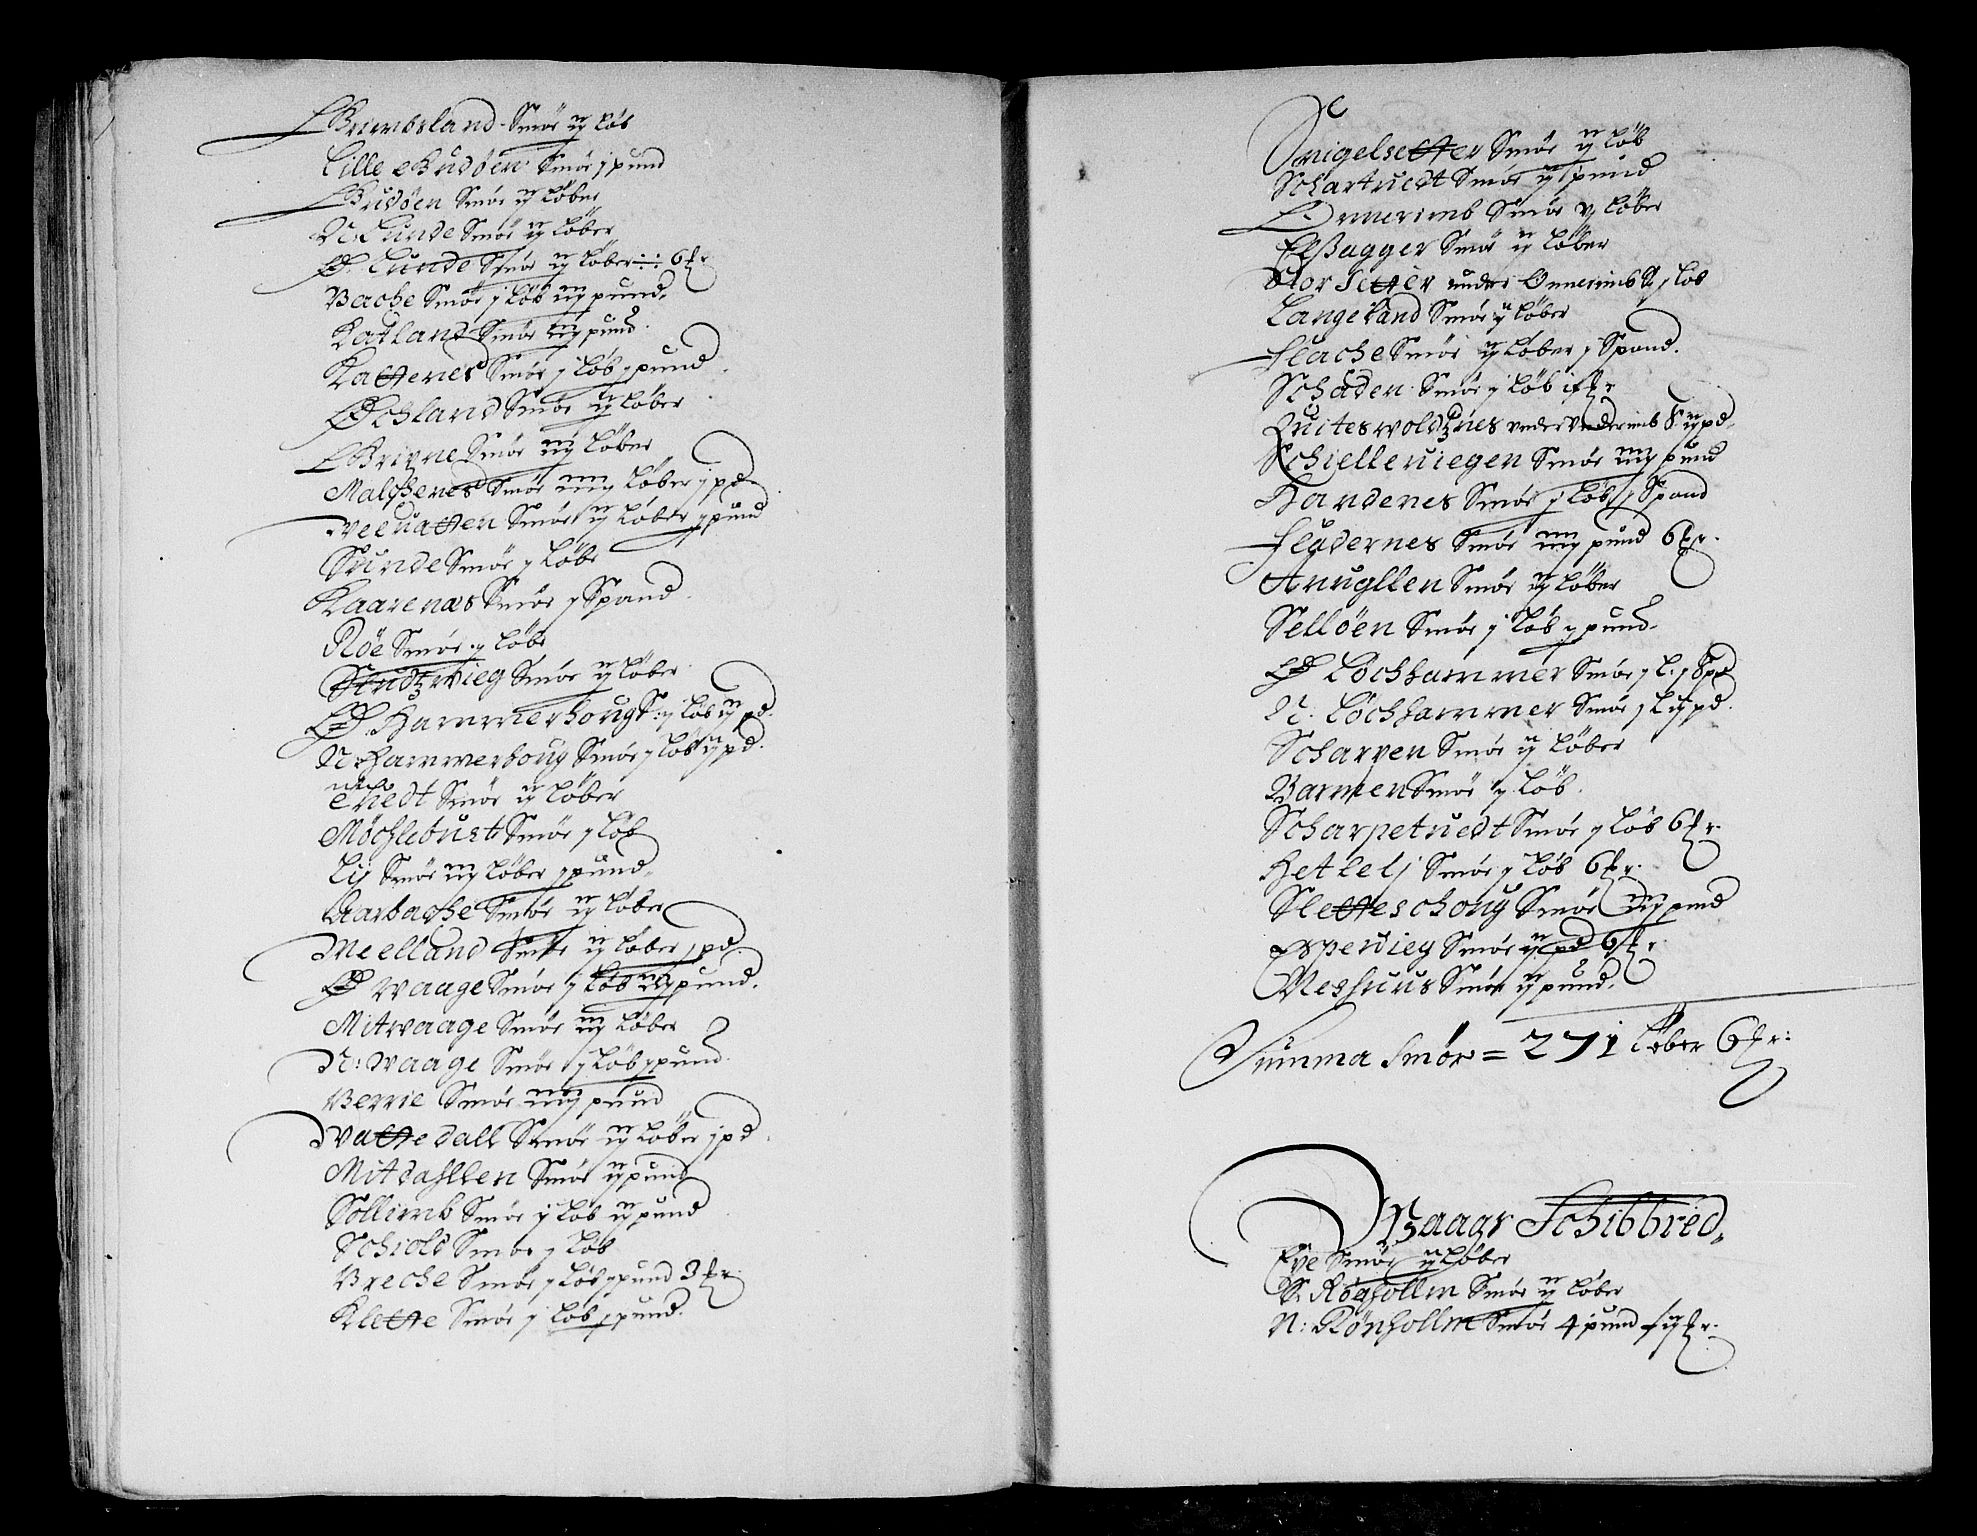 Brimbsland Smör ij Löb
Lille Budöen Smör j pund
Budöen Smör ij Löber
N. Lunde Smör ij Löber
Ø. Lunde Smör ij Löber 6 fr
Bache Smör j Löb iij pund.
Katland Smör iij pund.
Kattenes Smör j Löb j pund
Øchland Smör ij Löber
Brixne Smör iij Löber
Malchenes Smör iiij Löber j pd
Weeuatten Smör ij Löber j pund
Sunde Smör j Löb
Kaarenæs Smör j Spand
Röe Smör j Löb
Studtzwieg Smör ij Löber
Ø. Hammerhoug S: j Löb ij pd.
N. Hammerhoug Smör j Löb ij pd.
Smör ij Löber
Möchlebust Smör j Löb
Lij Smör iij Löber j pund.
Aarbache Smör ij Löber
Meelland Smör ij Löber j pd.
Ø Waage Smör j Löb iij pund.
Mitwaage Smör iij Löber
N: Waage Smör j Löb j pund.
Berrie Smör iiij pund
Wattedall Smör ij Löber j pd.
Mitdahllen Smör ij pund
Sollimb Smör j Löb ij pund
Schiold Smör j Löb
Breche Smör j Löb j pund 3 fr.
Klette Smör j Löb j pund.
Snigelsetter Smör ij Löb
Schartuedt Smör ij pund
Onnerimb Smör v Löber
Elßagger Smör ij Löber
Stor Setter under Onnerimb S. j Löb
Langeland Smör ij Löber
Flache Smör ij Löber j Spand.
Schåden Smör j Löb i fr
Quiteswoldznes under S. ij pd.
Schielleuiegen Smör iiij pund
Handenes Smör j Löb j Spand
Fladernes Smör iiij pund 6 fr.
Anugllen Smör ij Löber
Sellöen Smör j Löb j pund.
Ø Löchhammer Smör j L. j Spd
N. Löchhammer Smör j L ij pd.
Scharpen Smör ij Löber
Barmen Smör j Löb.
Scharpetuedt Smör j Löb 6 fr.
Hetlelj Smör j Löb 6 fr.
Sletteschoug Smör iij pund
Esperuieg Smör ij pd 6 fr.
Meshuus Smör ij pund.
Summa Smör = 271 Löber 6 fr:
Waags Schibbred.
Eye Smör ij Löber
S. Rönhollm Smör ij Löber
N: Rönhollm Smör 4 pund ij fr.